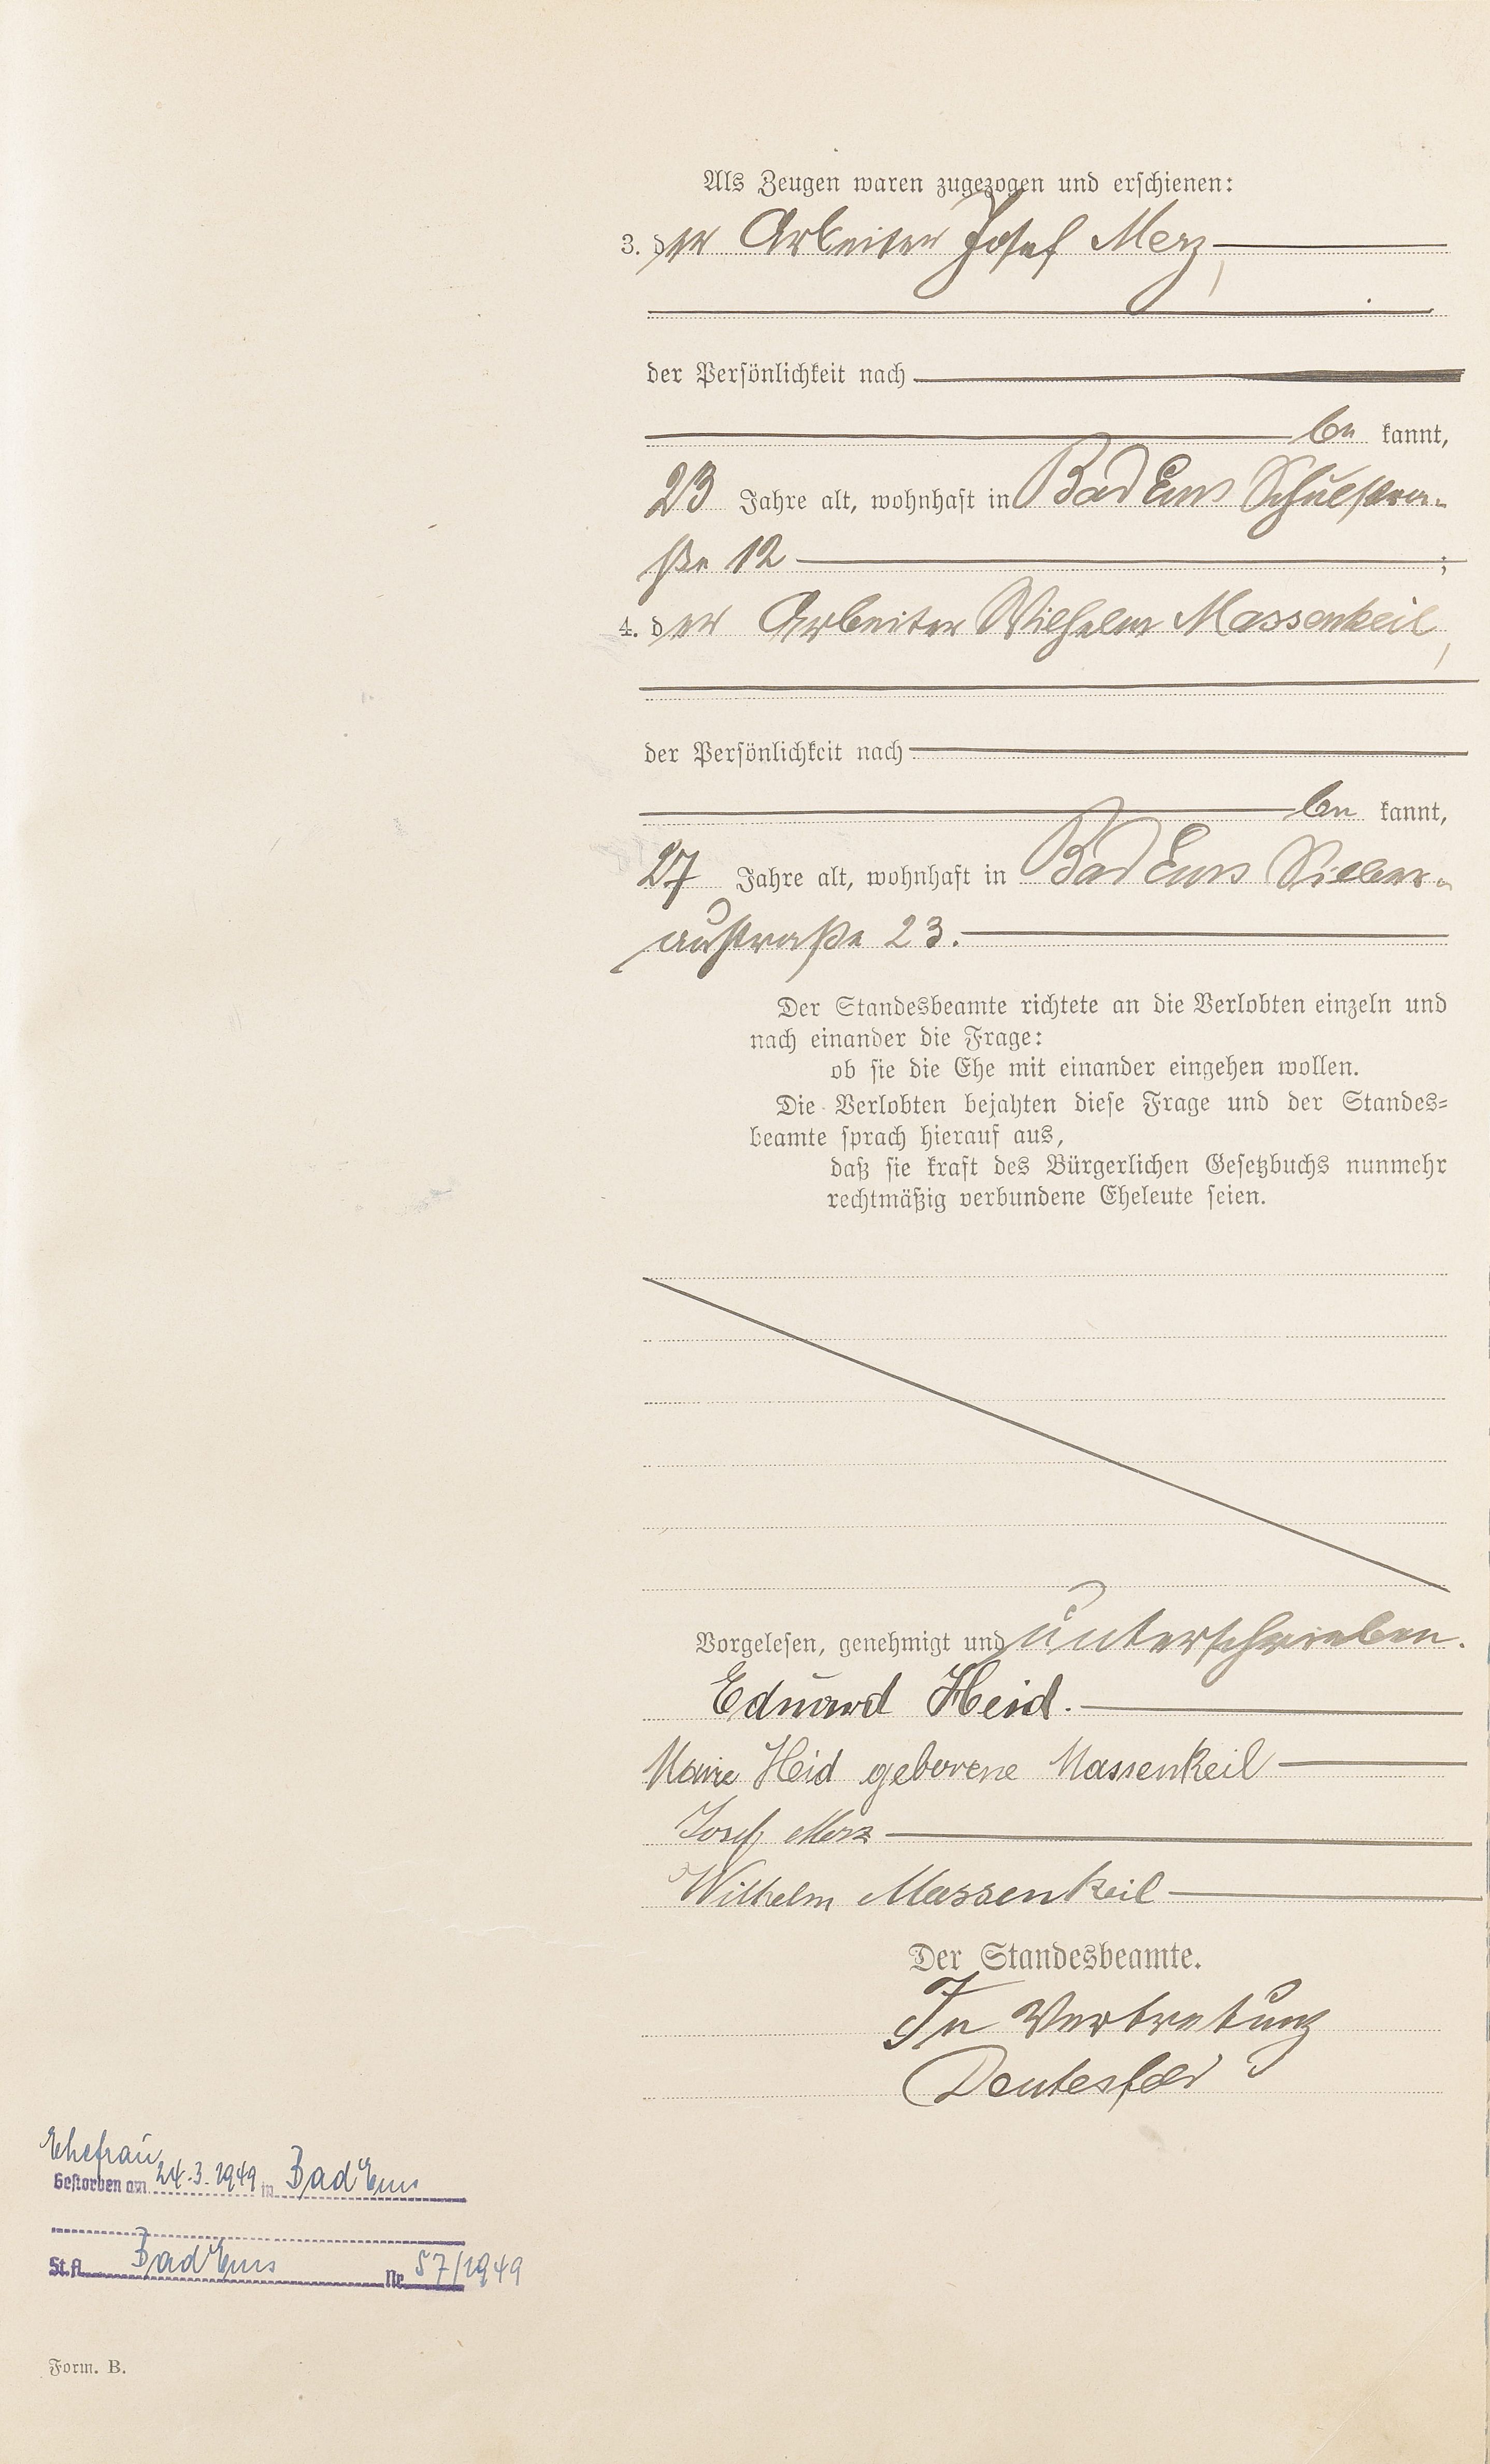 Als Zeugen waren zugezogen und erschienen:
3. der Arbeiter Josef Merz,
der Persönlichkeit nach
be kannt,
23 Jahre alt, wohnhaft in Bad Ems Schulstra-
ße 12 ;
4. der Arbeiter Wilhelm Massenkeil,
der Persönlichkeit nach
be kannt,
27 Jahre alt, wohnhaft in Bad Ems Silber-
austraße 23.
Der Standesbeamte richtete an die Verlobten einzeln und
nach einander die Frage:
ob sie die Ehe mit einander eingehen wollen.
Die Verlobten bejahten diese Frage und der Standes=
beamte sprach hierauf aus,
daß sie kraft des Bürgerlichen Gesetzbuchs nunmehr
rechtmäßig verbundene Eheleute seien.
Vorgelesen, genehmigt und unterschrieben.
Eduard Heid.
Marie Heid geborene Massenkeil
Josef Merz
Wilhelm Massenkeil
Der Standesbeamte.
In Vertretung
Ehefrau
Gestorben am 24.3.1949 in Bad Ems
St.A. Bad Ems Nr. 57/1949
Form. B.